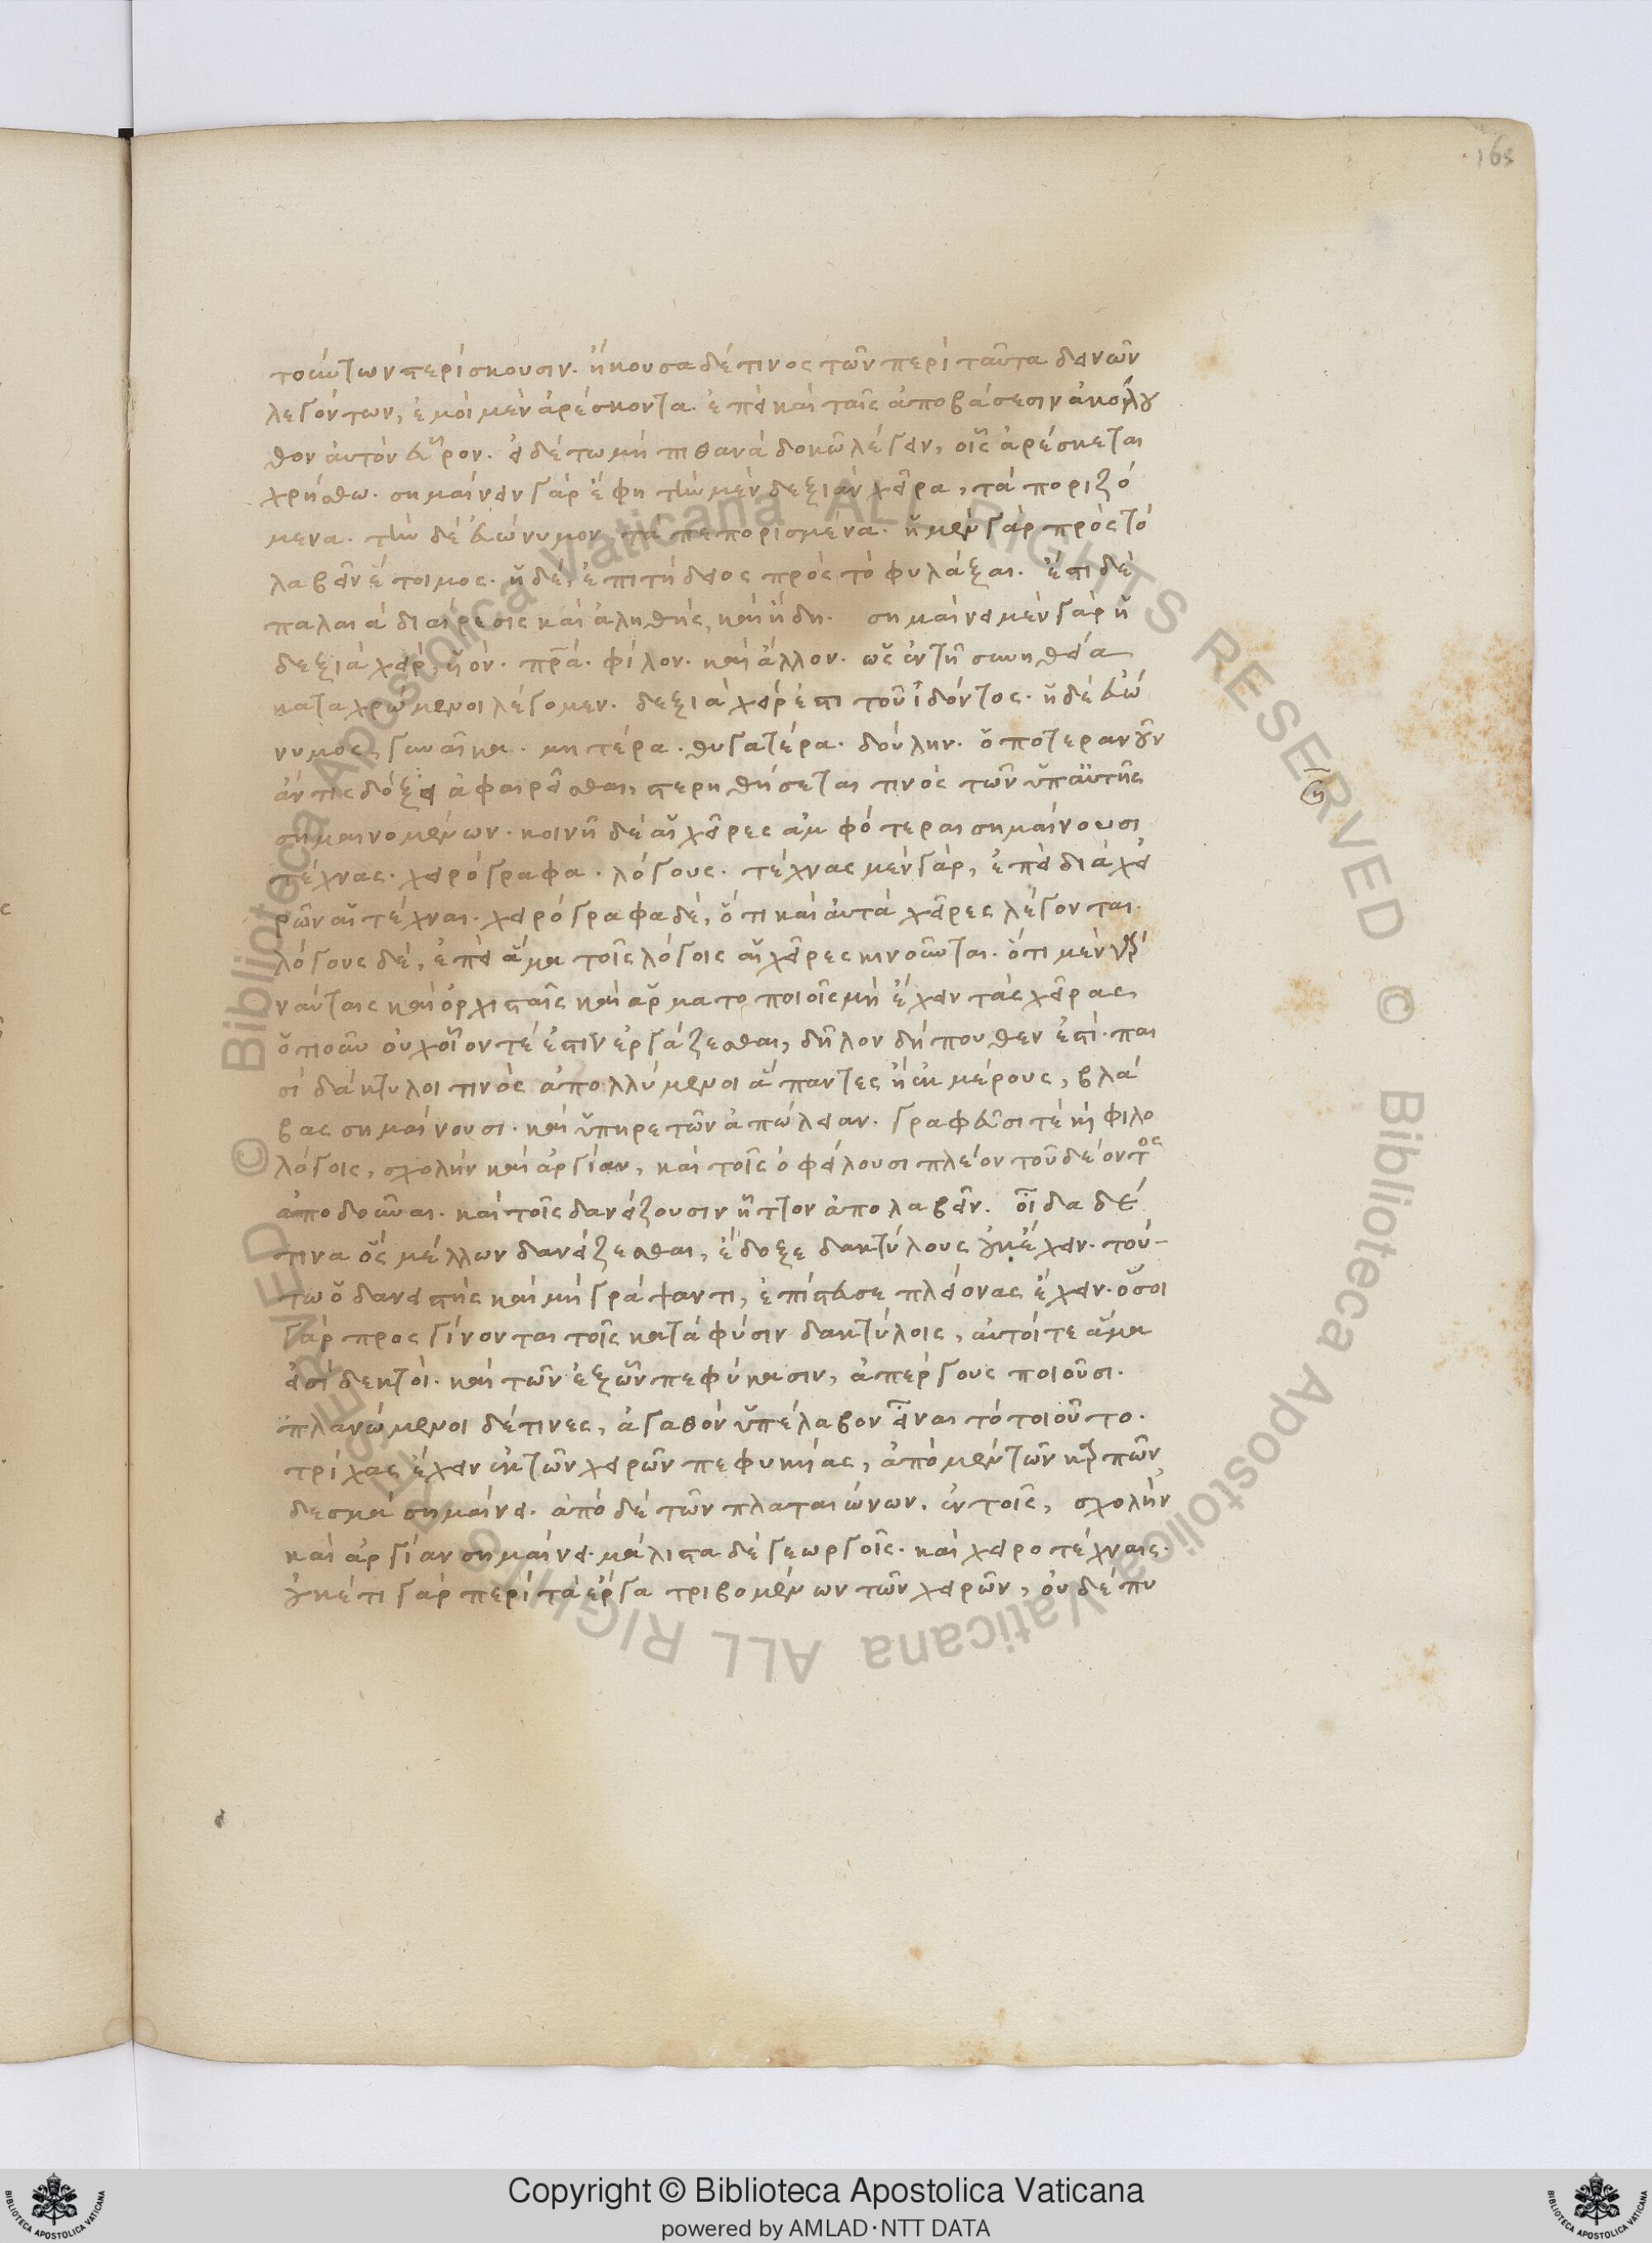 165
τούτων στερίσκουσιν. ἤκουσα δέ τινος τῶν περὶ ταῦτα δεινῶν
λεγόντων, ἐμοὶ μὲν ἀρέσκοντα. ἐπεὶ καὶ ταῖς ἀποβάσεσιν ἀκόλου
θον αὐτὸν εὗρον. εἰ δέ τω μὴ πιθανὰ δοκῶ λέγειν, οἷς ἀρέσκεται
χρήσθω. σημαίνειν γὰρ ἔφη τὴν μὲν δεξιὰν χεῖρα, τὰ ποριζό
μενα. τὴν δὲ εὐώνυμον, τὰ πεπορισμένα. ἡ μὲν γὰρ πρὸς τὸ
λαβεῖν ἕτοιμος. ἡ δὲ, ἐπιτήδειος πρὸς τὸ φυλάξαι. ἔστι δὲ
παλαιὰ διαίρεσις καὶ ἀληθὴς, καὶ ἤδη. σημαίνει μὲν γὰρ ἡ
δεξιὰ χεὶρ, υἱόν. πρα. φίλον. καὶ ἄλλον. ὡς ἐν τῇ συνηθείᾳ
καταχρώμενοι λέγομεν. δεξιὰ χεὶρ ἐστι τοῦ ἰδόντος. ἡ δὲ εὐώ
νυμος, γυναῖκα. μητέρα. θυγατέρα. δούλην. ὁποτέραν οὖν
ἄν τις δόξει ἀφαιρεῖσθαι, στερηθήσεται τινὸς τῶν ὑπ' αὐτῆς
σημαινομένων. κοινῇ δὲ αἱ χεῖρες ἀμφότεραι σημαίνουσι
τέχνας. χειρόγραφα. λόγους. τέχνας μὲν γὰρ, ἐπεὶ διὰ χει
ρῶν αἱ τέχναι. χειρόγραφα δὲ, ὅτι καὶ αὐτὰ χεῖρες λέγονται.
λόγους δὲ, ἐπεὶ ἅμα τοῖς λόγοις αἱ χεῖρες κινοῦνται. ὅτι μὲν γὰρ
ναύταις καὶ ὀρχισταῖς καὶ ἁρματοποιοῖς μὴ ἔχειν τὰς χεῖρας,
ὁτιοῦν οὐχ οἷόν τέ ἐστιν ἐργάζεσθαι, δῆλον δήπουθεν ἐστί. πᾶ
σι δάκτυλοι τινὸς ἀπολλύμενοι ἅπαντες ἢ ἐκ μέρους, βλά
βας σημαίνουσι. καὶ ὑπηρετῶν ἀπώλειαν. γραφεῦσι τὲ καὶ φιλο
λόγοις, σχολὴν καὶ ἀργίαν, καὶ τοῖς ὀφείλουσι πλεῖον τοῦ δέοντος
ἀποδοῦναι. καὶ τοῖς δανείζουσιν ἧττον ἀπολαβεῖν. οἶδα δέ
τινα ὃς μέλλων δανείζεσθαι, ἔδοξε δακτύλους οὐκ ἔχειν. τού-
τω ὁ δανειστὴς καὶ μὴ γράψαντι, ἐπίστευσε πλείονας ἔχειν. ὅσοι
γὰρ προσγίνονται τοῖς κατὰ φύσιν δακτύλοις, αὐτοί τε ἅμα
εἰσὶ δεκτοὶ. καὶ τῶν ἐξ ὧν πεφύκασιν, ἀπέργους ποιοῦσι.
πλανώμενοι δέ τινες, ἀγαθὸν ὑπέλαβον εἶναι τὸ τοιοῦτο.
τρίχας ἔχειν ἐκ τῶν χειρῶν πεφυκυίας, ἀπὸ μὲν τῶν καρπῶν
δεσμὰ σημαίνει. ἀπὸ δὲ τῶν πλαταιώνων. ἐν τοῖς, σχολὴν
καὶ ἀργίαν σημαίνει. μάλιστα δὲ γεωργοῖς. καὶ χειροτέχναις.
οὐκέτι γὰρ περὶ τὰ ἔργα τριβομένων τῶν χειρῶν, οὐδὲ πυ
Copyright © Biblioteca Apostolica Vaticana
powered by AMLAD·NTT DATA